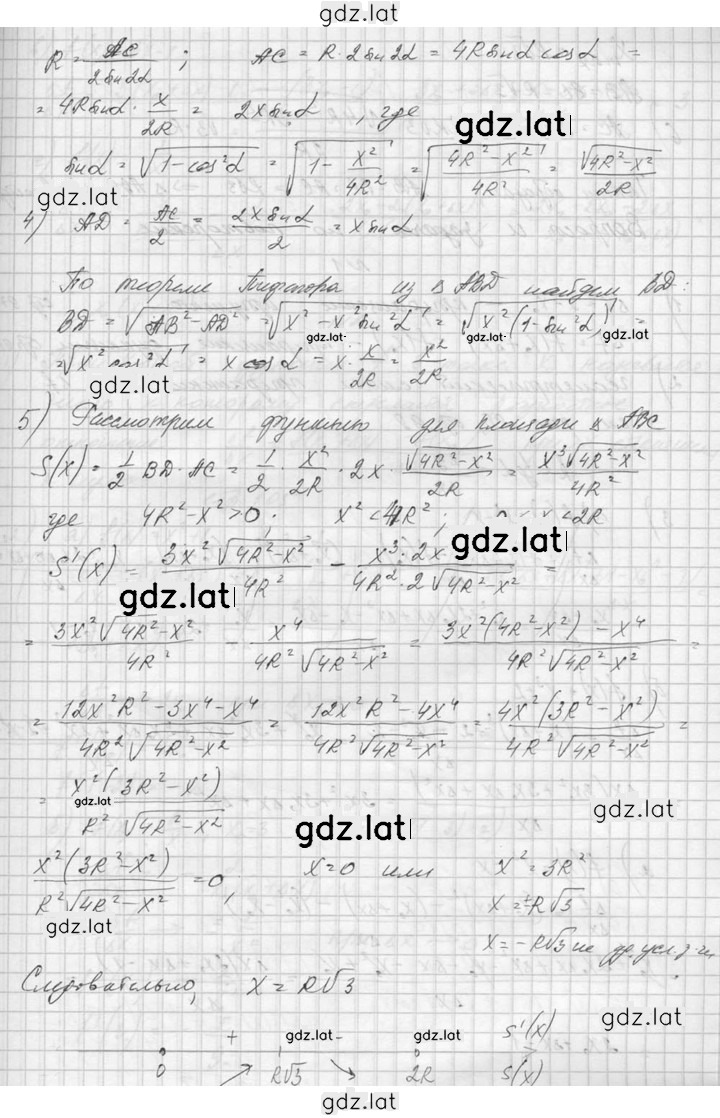 gdz.lat
R = AC / 2sin2α ; AC = R·2sin2α = 4Rsinα cosα =
= 4Rsinα · x/2R = 2x sinα, где
gdz.lat
sinα = √(1-cos²α) = √(1 - x²/4R²) = √((4R²-x²)/4R²) = √(4R²-x²)/2R
gdz.lat
4) AD = AC/2 = 2x sinα/2 = x sinα
По теореме Пифагора из △ ABD найдем BD:
BD = √(AB²-AD²) = √(x²-x²sin²α) = √(x²(1-sin²α)) =
gdz.lat gdz.lat
= √(x²cos²α) = x cosα = x · x/2R = x²/2R
gdz.lat
5) Рассмотрим функцию для площади △ ABC
S(x) = 1/2 BD·AC = 1/2 · x²/2R · 2x · √(4R²-x²)/2R = x³√(4R²-x²)/4R²
где 4R²-x²>0; x²<4R²; x<2R
gdz.lat
S'(x) = 3x²√(4R²-x²)/4R² - x³·2x/(4R²·2√(4R²-x²)) =
gdz.lat
= 3x²√(4R²-x²)/4R² - x⁴/(4R²√(4R²-x²)) = (3x²(4R²-x²)-x⁴)/(4R²√(4R²-x²)) =
= (12x²R²-3x⁴-x⁴)/(4R²√(4R²-x²)) = (12x²R²-4x⁴)/(4R²√(4R²-x²)) = 4x²(3R²-x²)/(4R²√(4R²-x²)) =
= x²(3R²-x²)/(R²√(4R²-x²))
gdz.lat gdz.lat
gdz.lat
x²(3R²-x²)/(R²√(4R²-x²)) = 0, x=0 или x²=3R²
x=±R√3
gdz.lat
x=-R√3 не уд. усл. з-чи
Следовательно, x = R√3
gdz.lat
+ gdz.lat gdz.lat S'(x)
0 ↗ R√3 ↘ 2R S(x)
gdz.lat